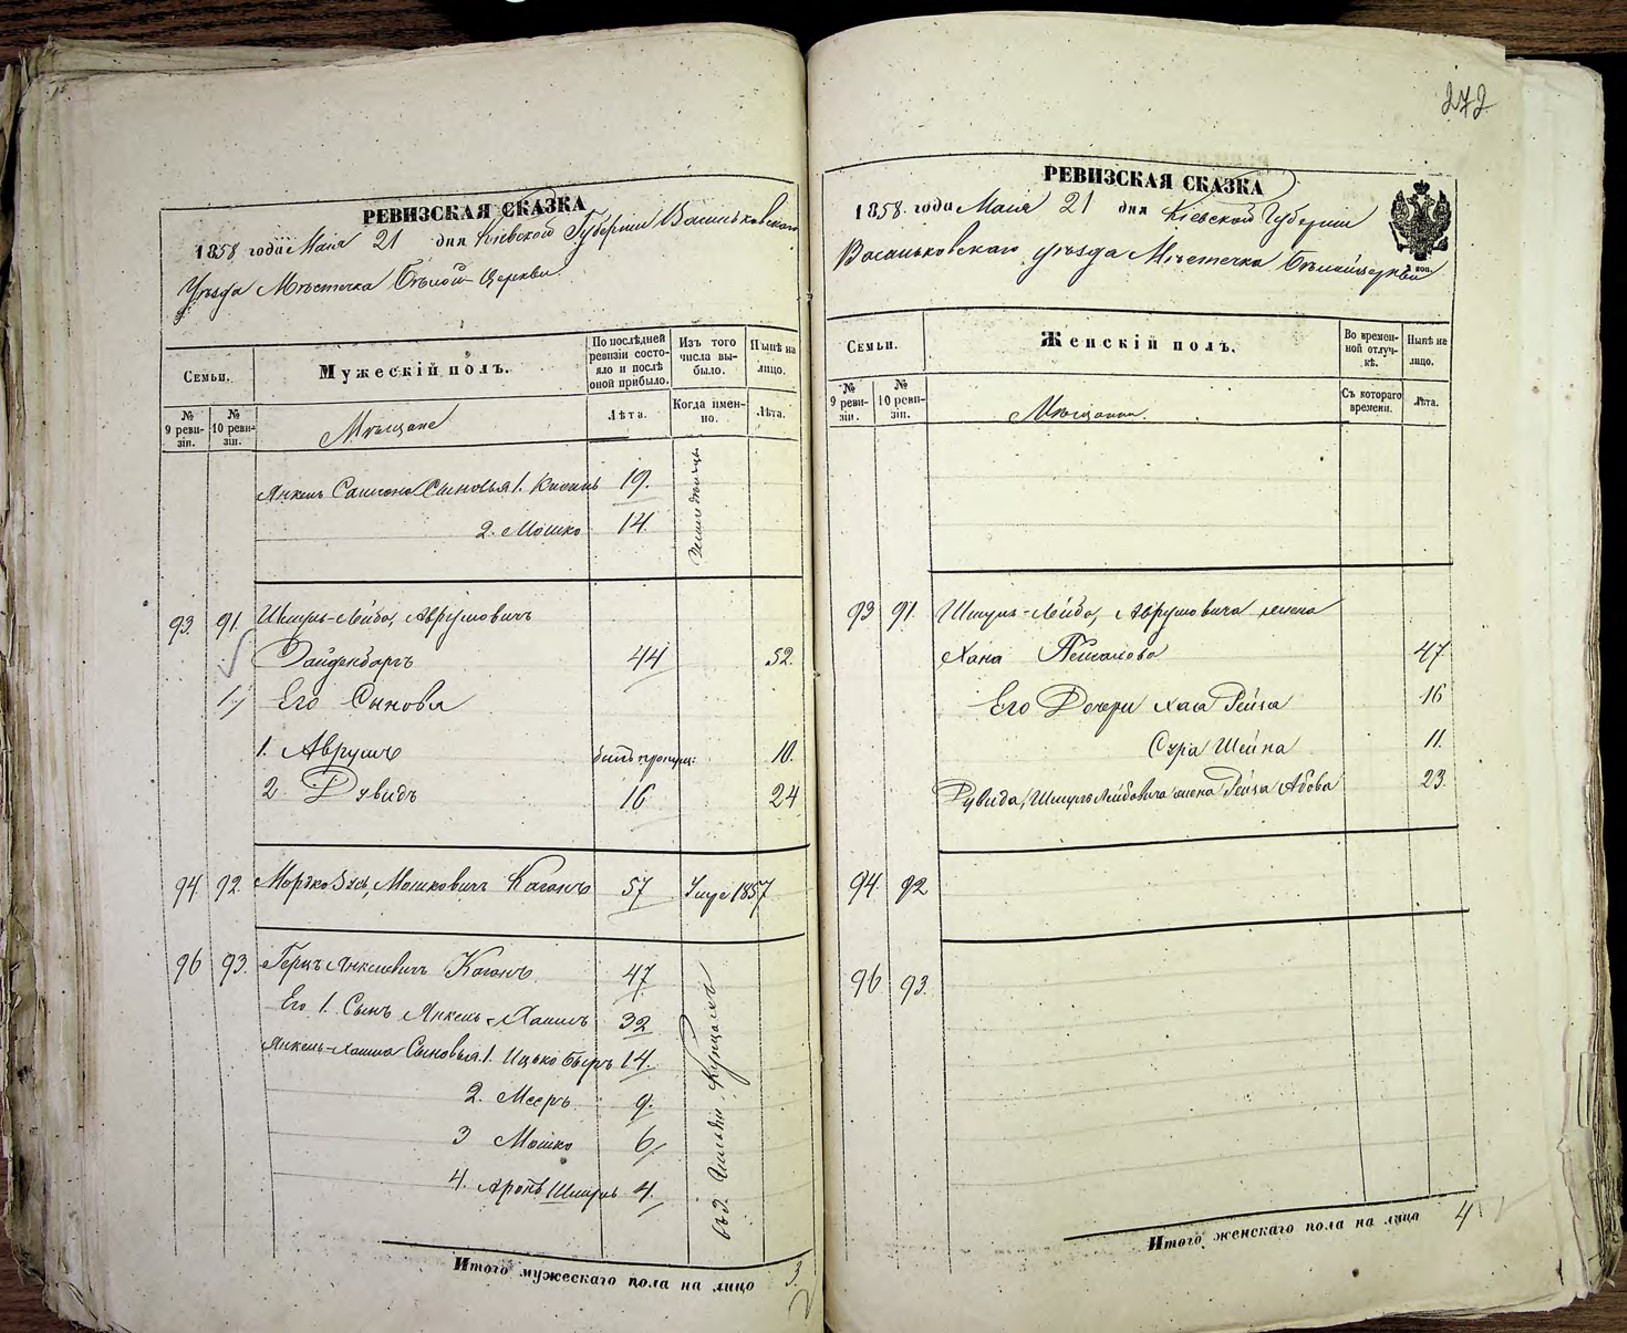 272
РЕВИЗСКАЯ СКАЗКА
1858 года Маія 21 дня Кіевской Губерніи Васильковскаго
Уѣзда Мѣстечка Бѣлой-Церкви
Семьи.
Мужескій полъ.
По послѣдней ревизіи состояло и послѣ оной прибыло.
Изъ того числа выбыло.
Нынѣ на лицо.
№ 9 ревизіи.
№ 10 ревизіи.
Мѣщане
Лѣта.
Когда именно.
Лѣта.
Янкель Сыновья 1. 19.
2. Мошко 14.
93. 91. Шмуль-Лейба, Аврумовичъ
44 52.
Его Сыновя
1. Аврумъ былъ пропущ: 10.
2 Рувидъ 16 24
94 92. Мошковичъ Каганъ 57 1857
96 93. Герцъ Янкелевичъ Каганъ 47
Его 1. Сынъ Янкель-Хаимъ 32
Янкель-Хаима Сыновья. 1. Ицько Беръ 14.
2. Мееръ 9.
3 Мошко 6
4. Аронъ Шмуль 4.
Итого мужескаго пола на лицо 3
РЕВИЗСКАЯ СКАЗКА
1858. года Маія 21 дня Кіевской Губерніи
Васильковскаго уѣзда Мѣстечка Бѣлойцеркви
Семьи.
Женскій полъ.
Во временной отлучкѣ.
Нынѣ на лицо.
№ 9 ревизіи.
№ 10 ревизіи.
Мѣщанки.
Съ котораго времени.
Лѣта.
93 91. Шмуль-Лейба, Аврумовича жена
Хана 47
Его Дочери Хая Рейза 16
Сура Шейна 11.
Рувида, Шмуль Лейбовича жена Рейза Абова 23.
94. 92
96 93.
Итого женскаго пола на лицо 4